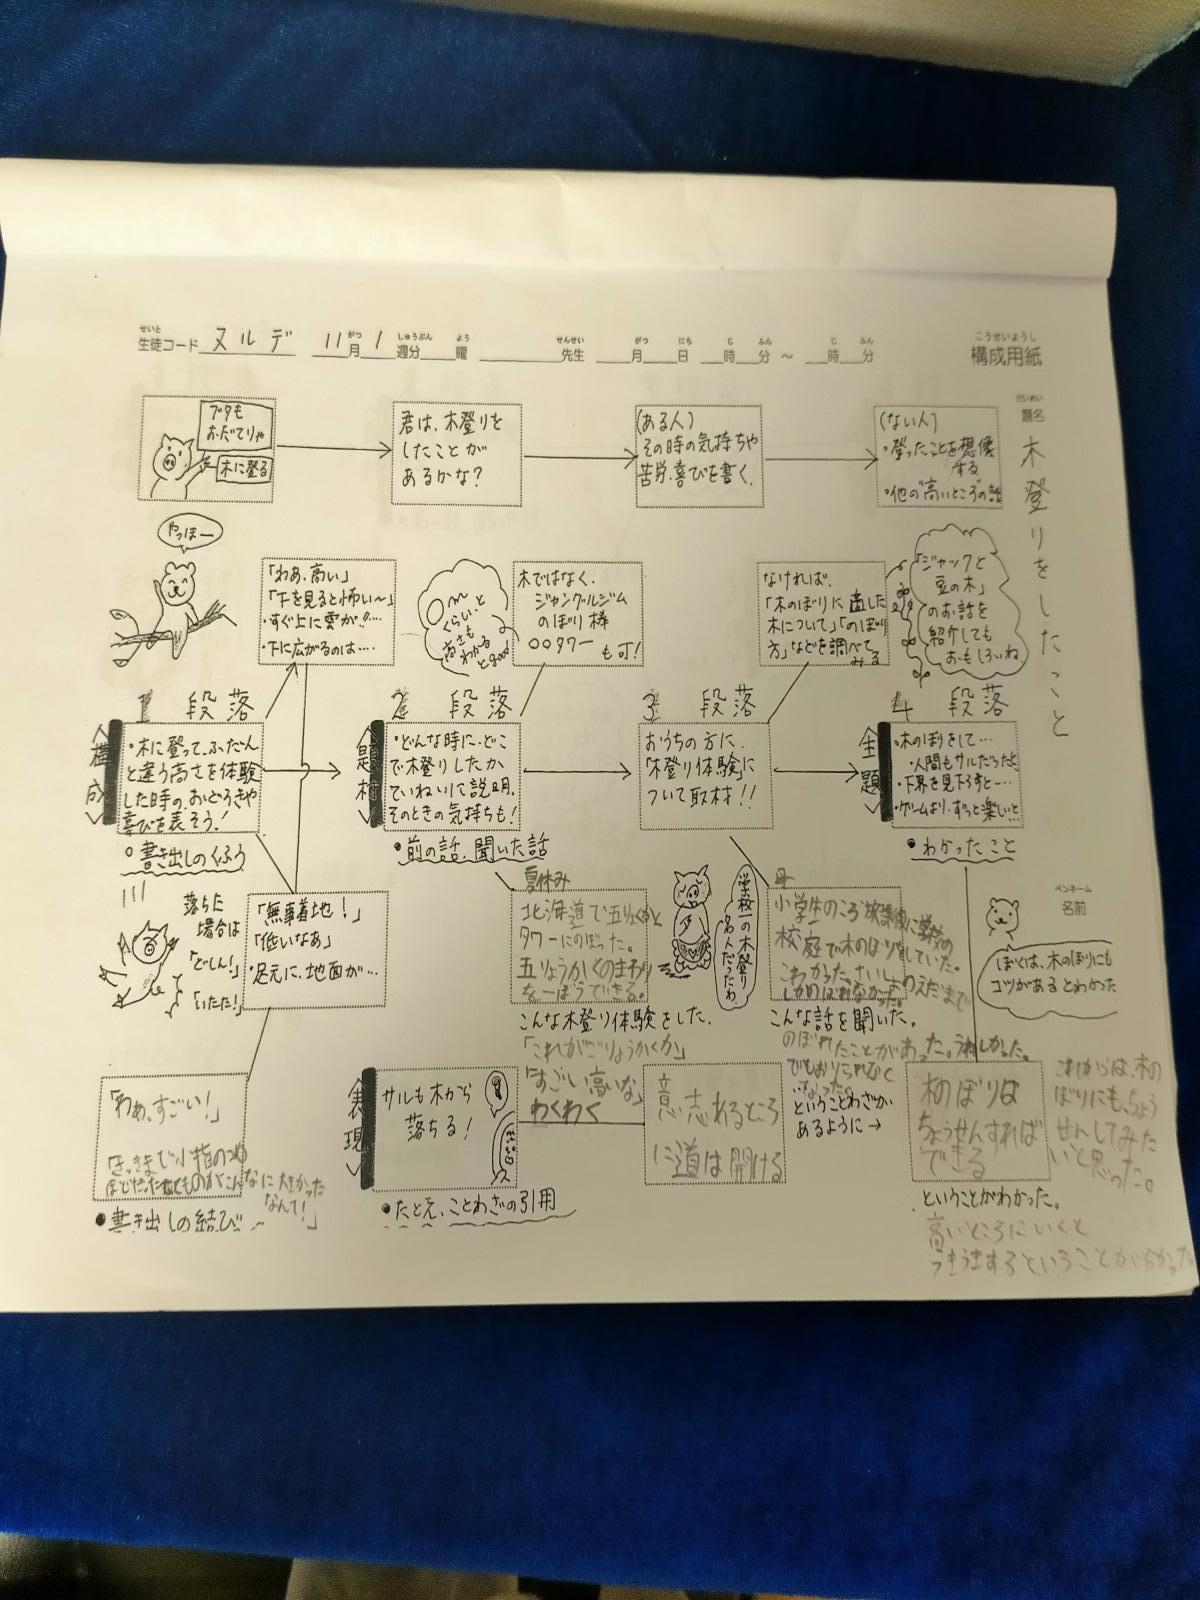 せいと がつ しゅうぶん よう せんせい がつ にち じ ふん じ ふん こうせいようし
生徒コード ヌルデ 11月1週分 曜 先生 月 日 時 分 〜 時 分 構成用紙
だいめい
題名
木登りをしたこと
ブタも
おだてりゃ
木に登る
君は、木登りを
したことが
あるかな？
(ある人)
その時の気持ちや
苦労、喜びを書く。
(ない人)
・登ったことを想像
する
・他の“高いところ”の話
やっほー
「わあ、高い」
「下を見ると怖い〜」
・すぐ上に雲が!!‥‥
・下に広がるのは‥‥
○m
くらい、と
高さも
わかると
good
木ではなく、
ジャングルジム
のぼり棒
○○タワー
も可！
なければ、
「木のぼりに適した
木について」「のぼり
方」などを調べて
みる
「ジャックと
豆の木」
のお話を
紹介しても
おもしろいね
1 段落
2 段落
3 段落
4 段落
〈構成〉
・木に登って、ふだん
と違う高さを体験
した時の、おどろきや
喜びを表そう！
○書き出しのくふう
〈題材〉
・どんな時に、どこ
で木登りしたか
ていねいに説明。
そのときの気持ちも！
・前の話、聞いた話
おうちの方に、
「木登り体験」に
ついて取材!!
〈主題〉
・木のぼりをして…
・人間もサルだったと
・下界を見下ろすと‥‥
・ゲームより、ずっと楽しいと
・わかったこと
落ちた
場合は
「どしん！」
「いたた！」
「無事着地！」
「低いなあ」
・足元に、地面が…
夏休み
北海道で五りょくかと
タワーにのぼった。
五りょうかくのまわり
を一ぼうできる。
こんな木登り体験をした。
「これがごりょうかくか」
「すごい高いな」
わくわく
学校一の木登り
名人だったわ。
母
小学生のころ放課後に
校庭で木のぼりをしていた。
こわかった。さいしょのえだまで
しかのぼれなかった。
こんな話を聞いた。
のぼれたことがあった。うれしかった。
でもおりられなく
なった。
ということわざが
あるように→
ペンネーム
名前
ぼくは、木のぼりにも
コツがあるとわかった
「わあ、すごい！」
「さっきまで小指のつめ
ほどだったたてものがこんなに大きかった
なんて！」
・書き出しの結び〜
〈表現〉
サルも木から
落ちる！
・たとえ、ことわざの引用
意志あるところ
に道は開ける
木のぼりは
ちょうせんすれば
できる
ということがわかった。
高いところにいくと
うきうきするということが分かった
これからは、木の
ぼりにも、ちょう
せんしてみた
いと思った。